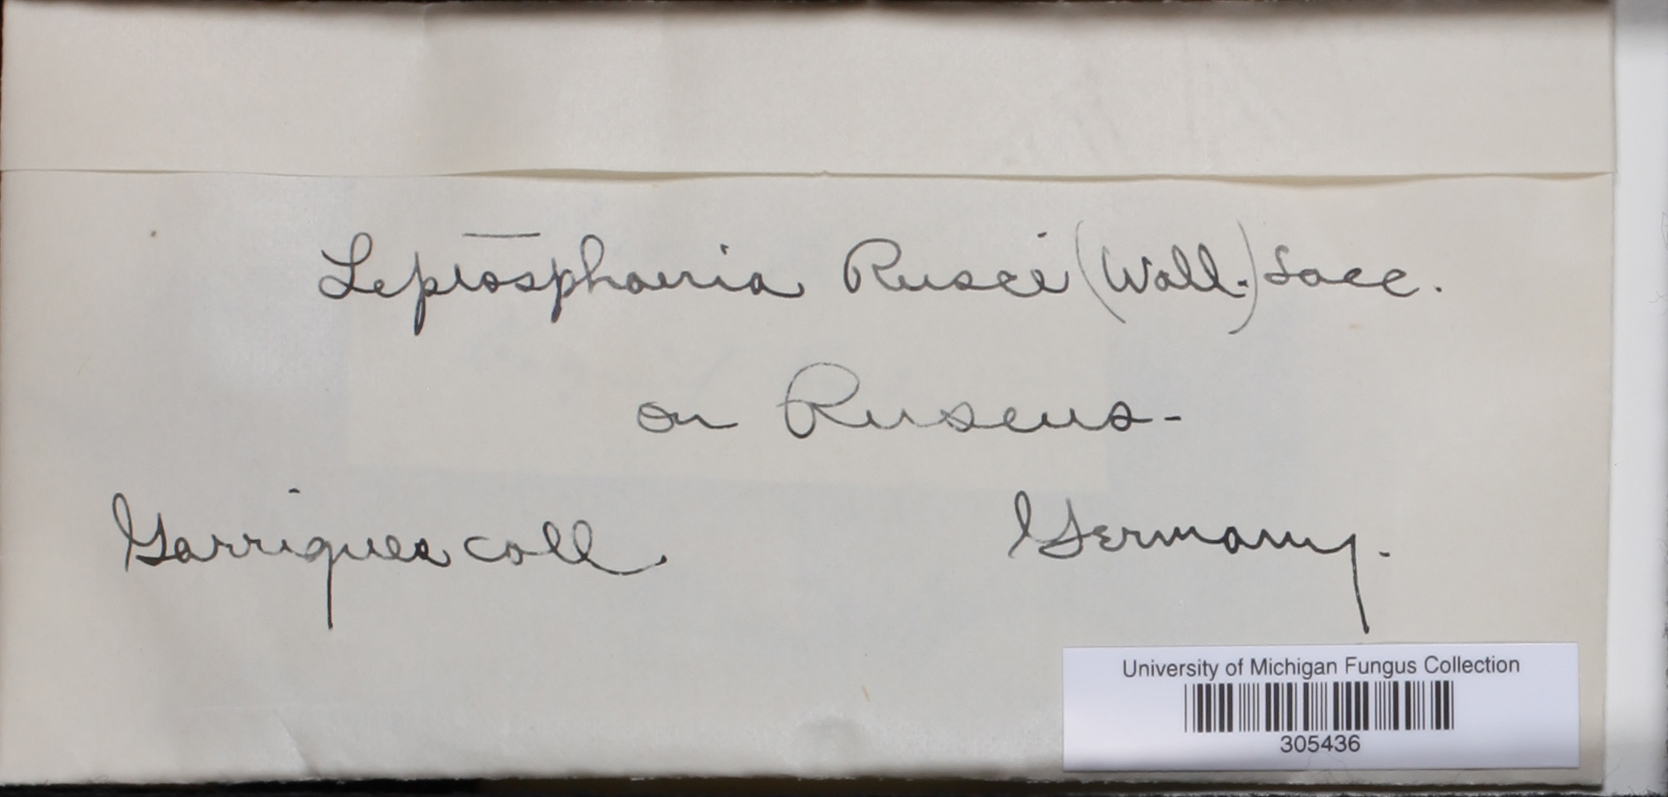 Leptosphaeria Rusci (Wall.) Sacc.
on Ruscus-
Garrigues coll.
Germany.
University of Michigan Fungus Collection
305436